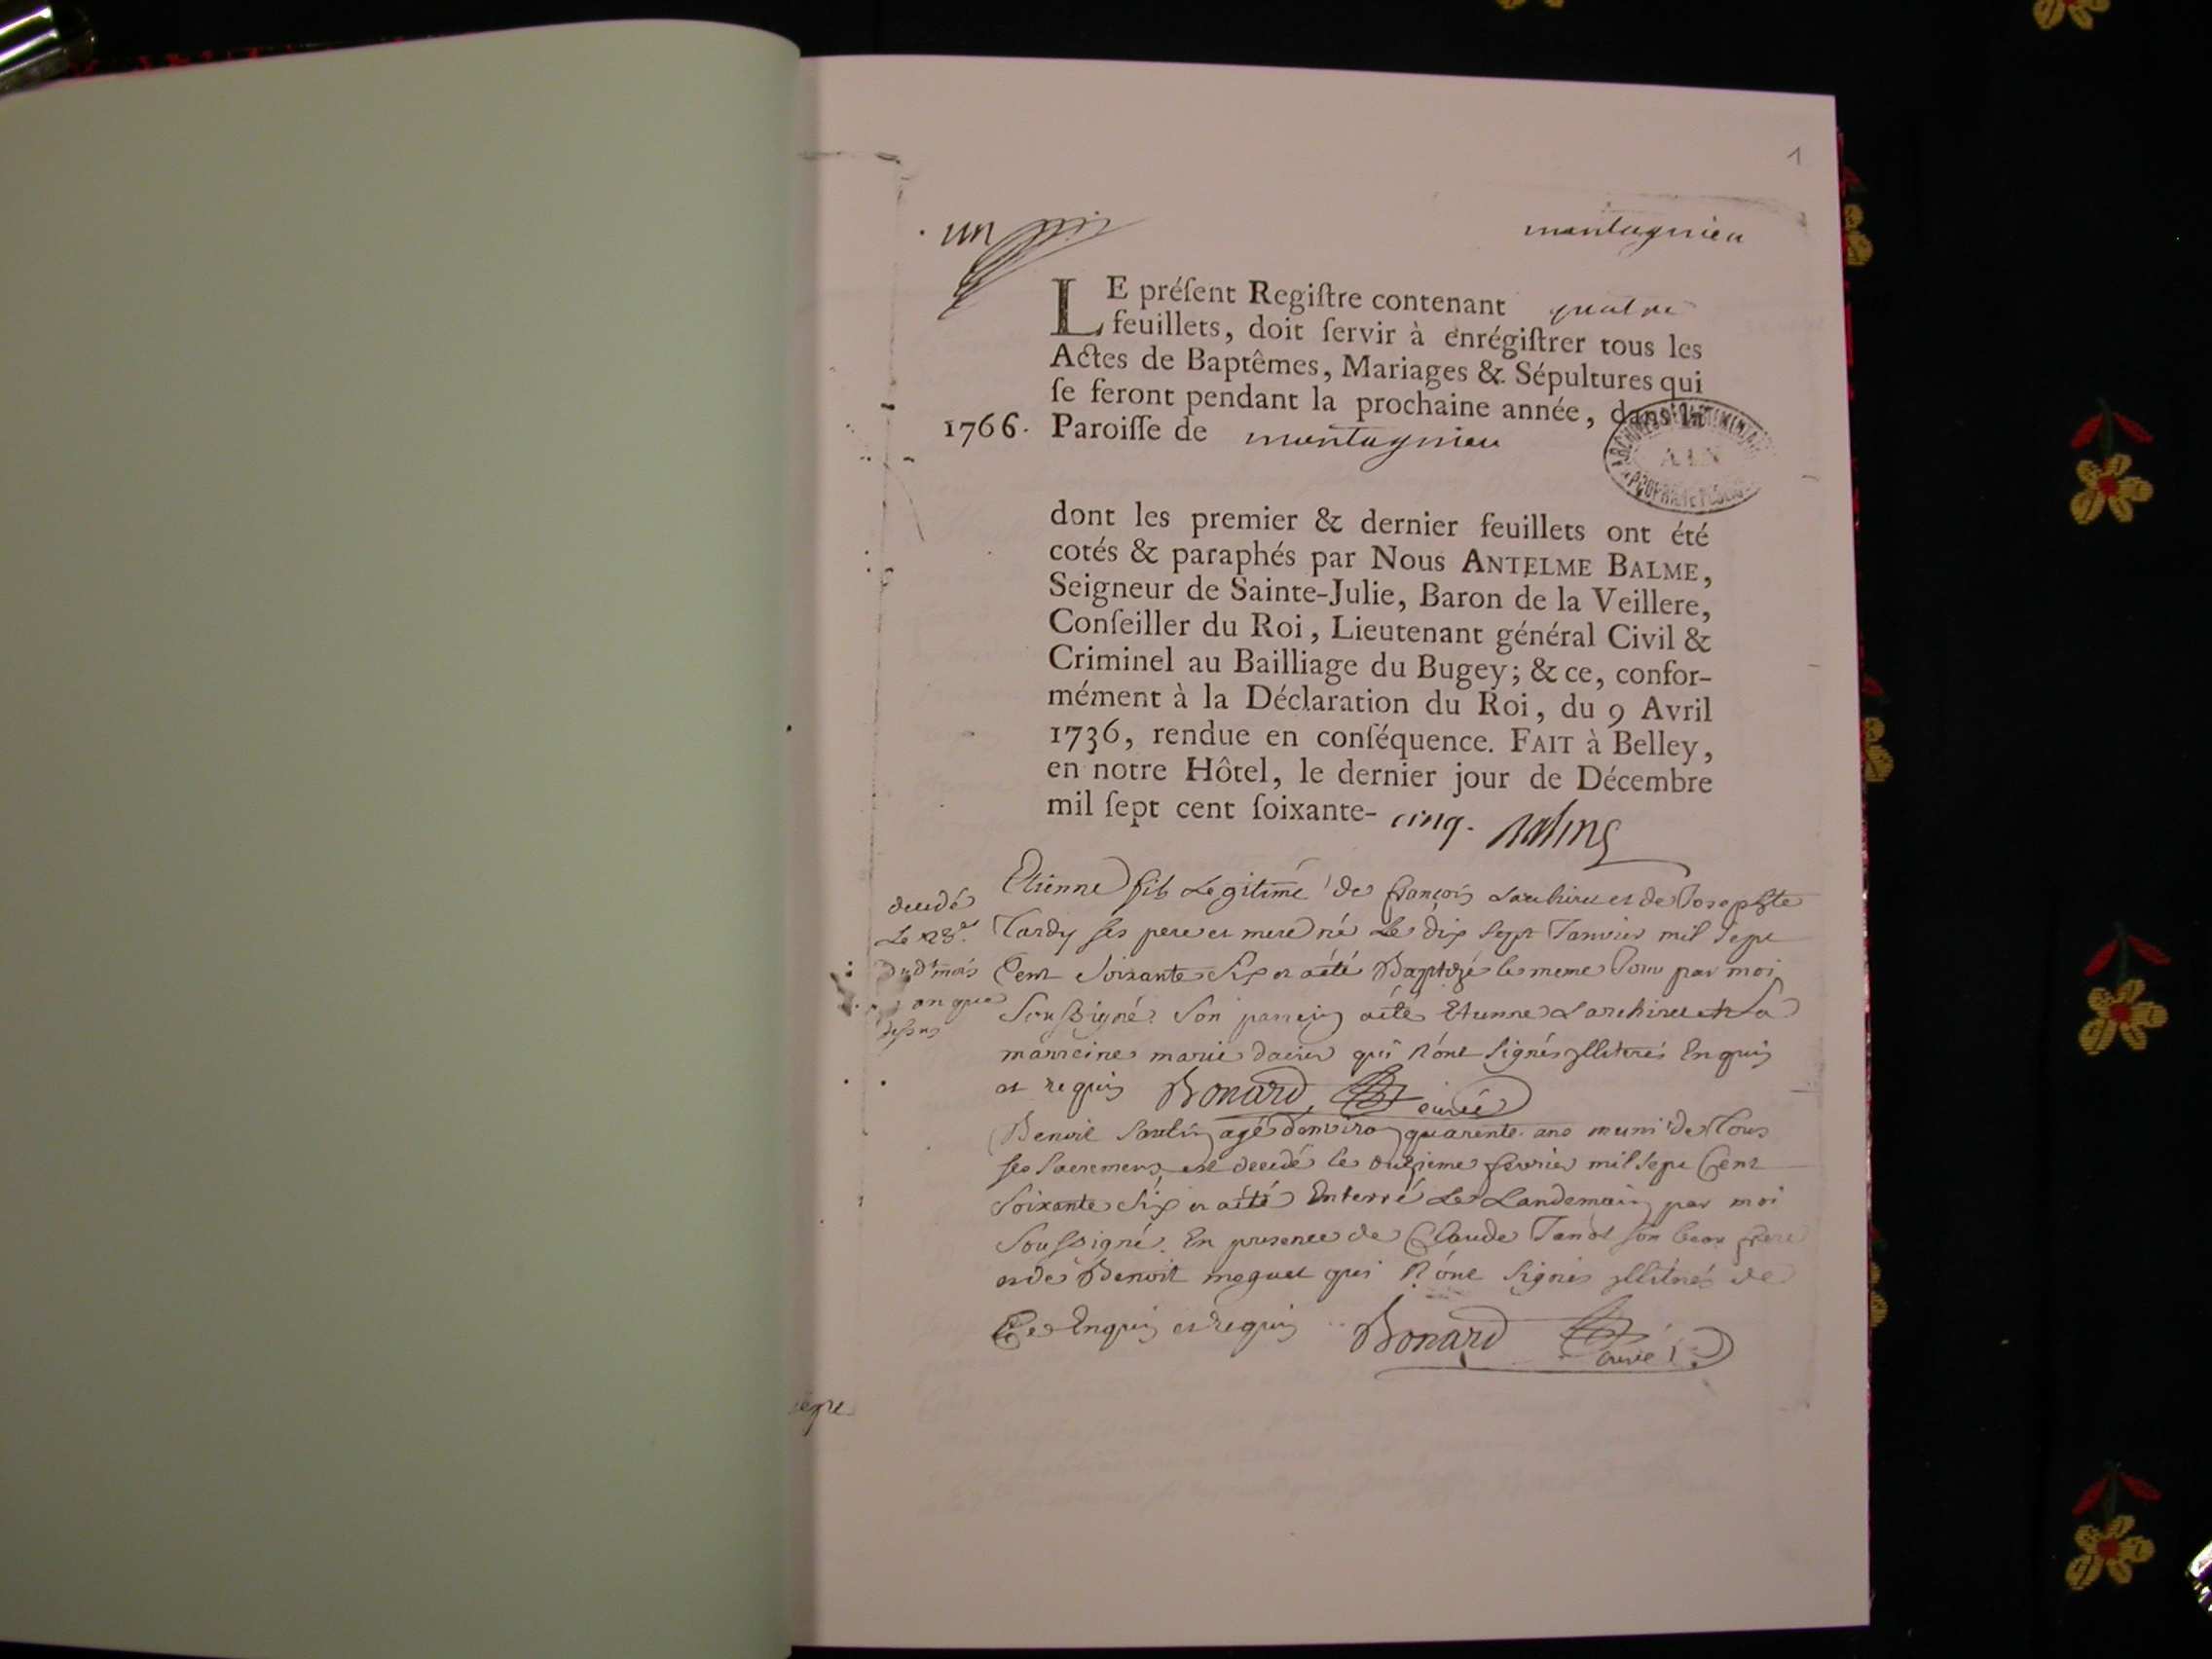 1
un
montagnieu
LE préſent Regiſtre contenant quatre
feuillets, doit ſervir à enrégiſtrer tous les
Actes de Baptêmes, Mariages & Sépultures qui
ſe feront pendant la prochaine année, dans la
1766. Paroiſſe de montagnieu
ARCHIVES DEPARTEMENTALES
AIN
PROPRIÉTÉ PUBLIQUE
dont les premier & dernier feuillets ont été
cotés & paraphés par Nous ANTELME BALME,
Seigneur de Sainte-Julie, Baron de la Veillere,
Conſeiller du Roi, Lieutenant général Civil &
Criminel au Bailliage du Bugey; & ce, confor-
mément à la Déclaration du Roi, du 9 Avril
1736, rendue en conſéquence. FAIT à Belley,
en notre Hôtel, le dernier jour de Décembre
mil ſept cent ſoixante-cinq. Balme
decedé
Le 28e
dudt mois
an que
dessus
Etienne fils Legitime de françois Larchiru et de Josephte
Tardy ses pere et mere né Le dix sept Janvier mil sept
Cent Soixante Six et a été Baptizé le meme Jour par moi
Soussigné. Son parrein a été Etienne Larchiru et La
marreine marie qui n'ont signés illiterés Enquis
et requis Bonard curé
Benoit agé d'environ quarente ans muni de Tous
ses Sacremens est decedé le onzieme fevrier mil sept Cent
Soixante Six et a été Enterré Le Landemain par moi
Soussigné. En presence de Claude Janot son beau frere
et de Benoit moguet qui n'ont signés illiterés de
Ce Enquis et requis Bonard curé